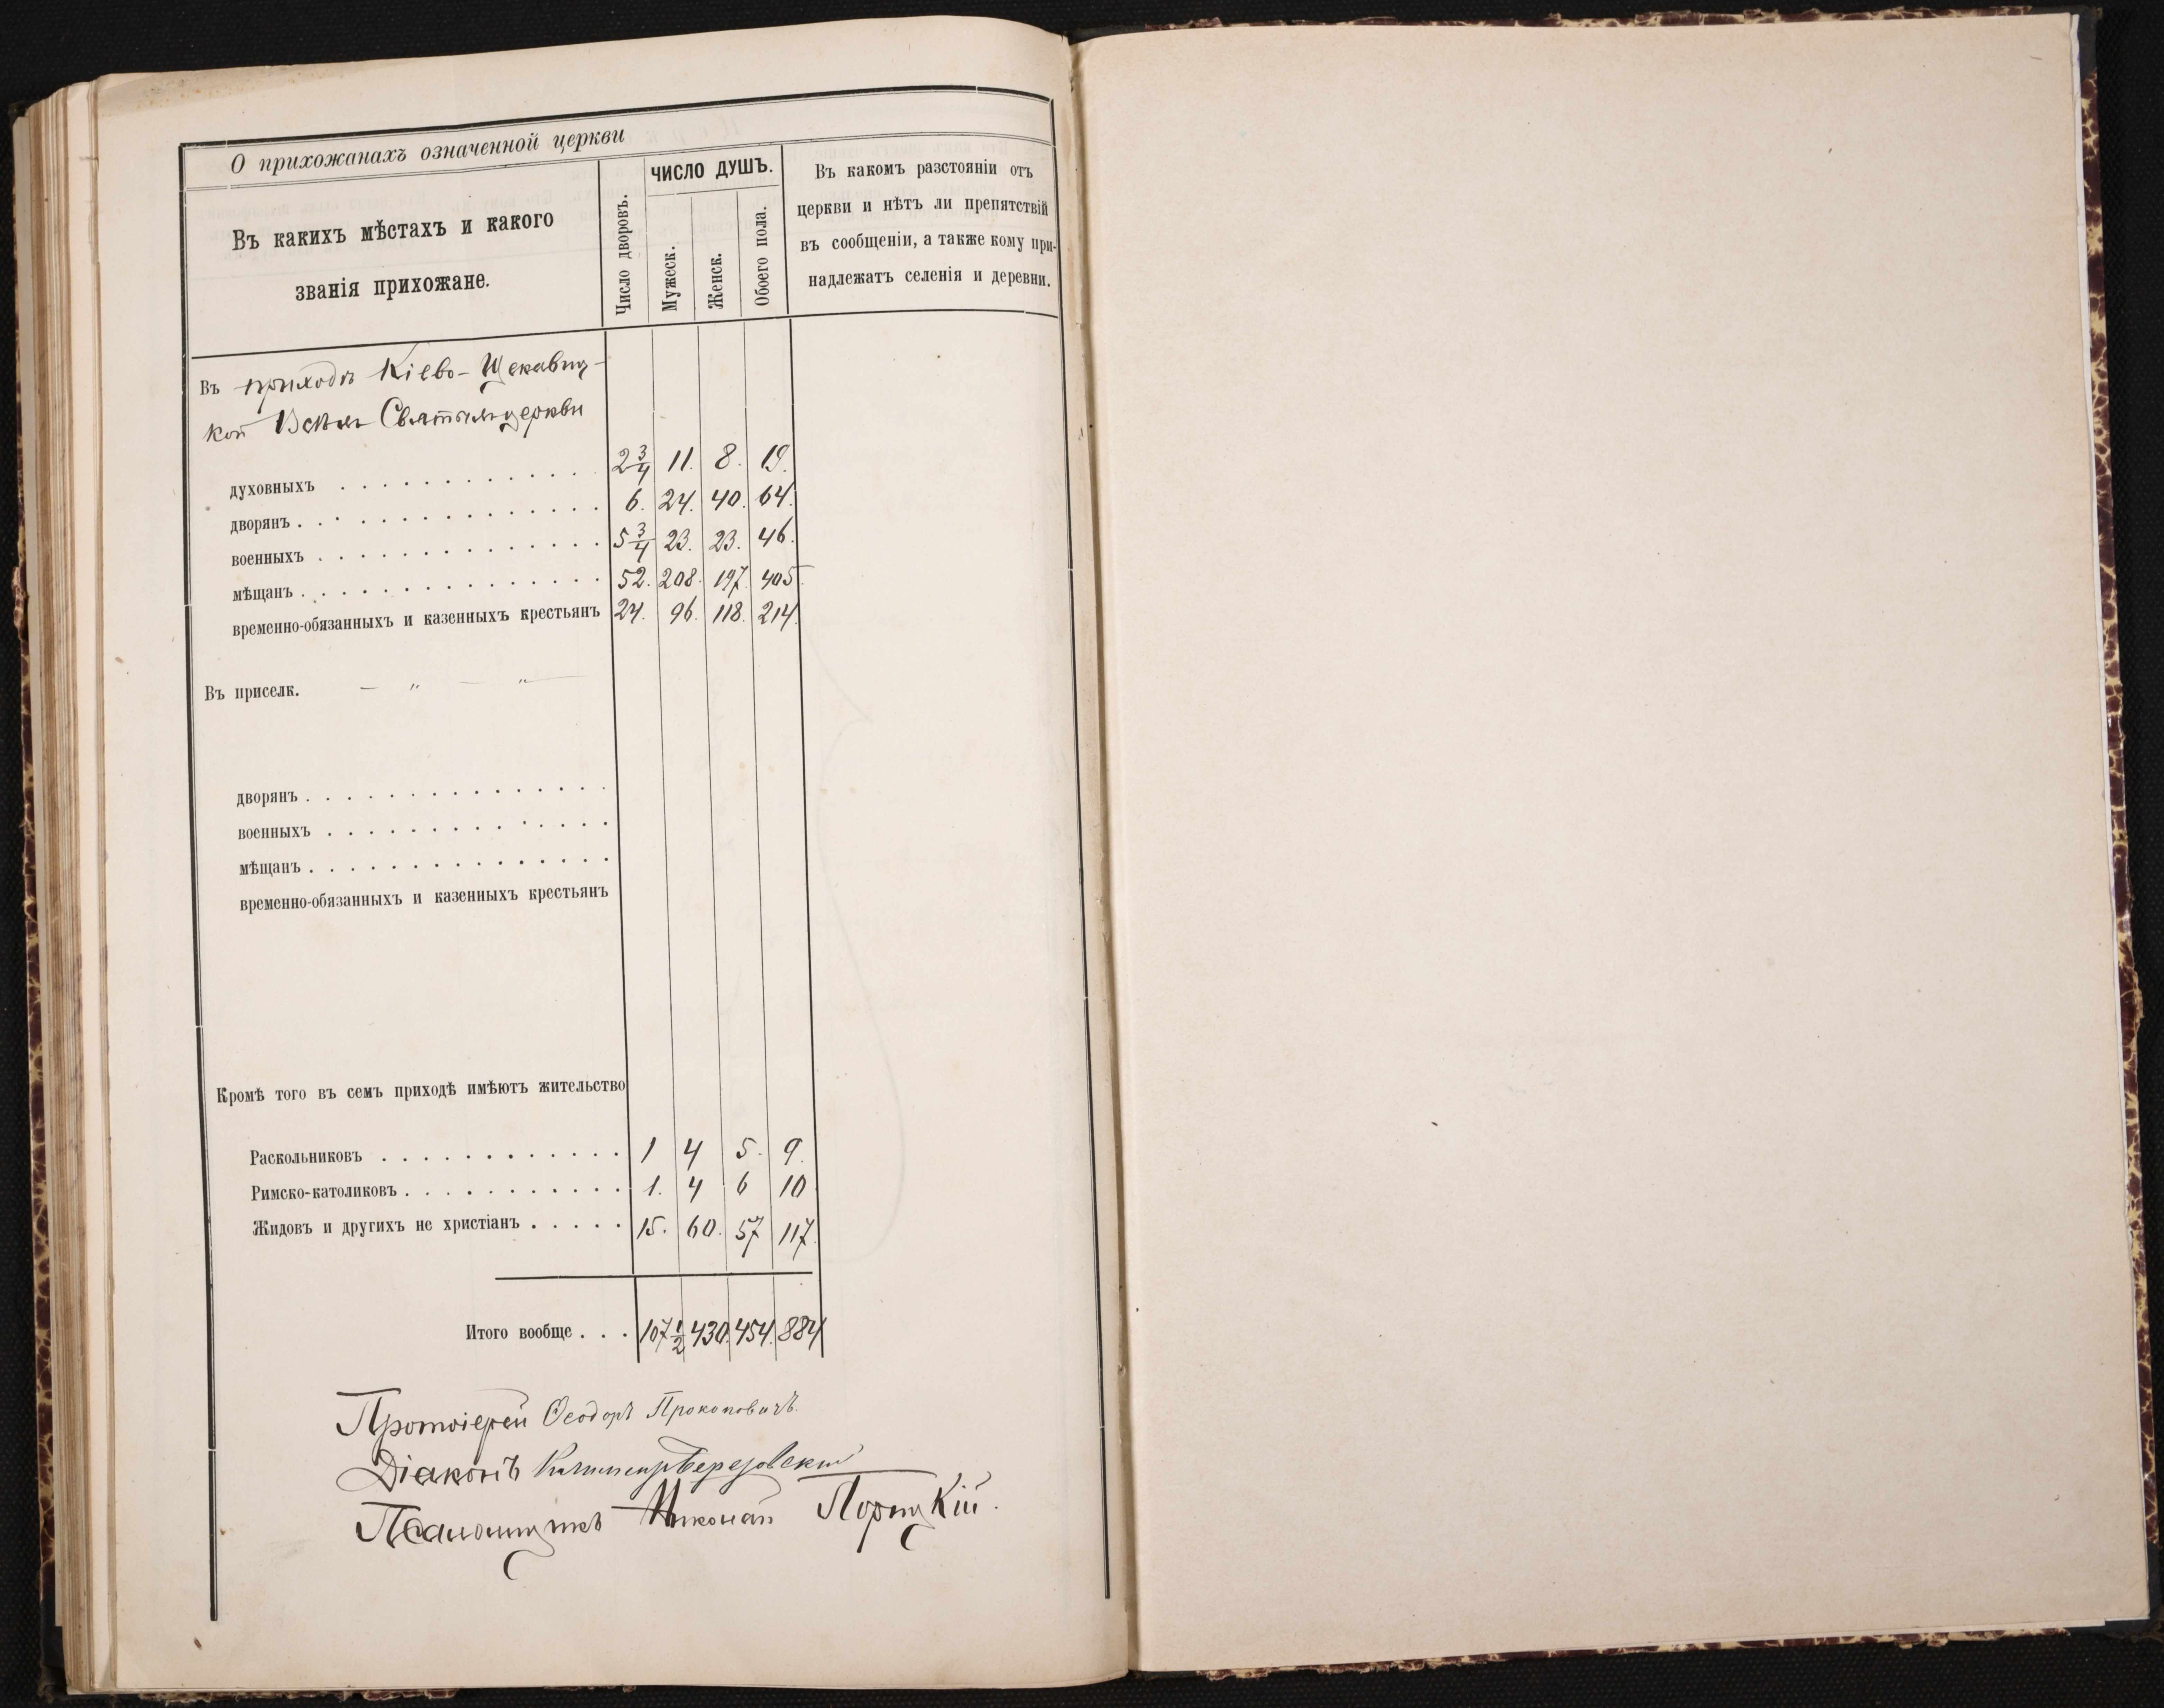 О прихожанахъ означенной церкви
Въ какихъ мѣстахъ и какого
званія прихожане.
Число дворовъ.
ЧИСЛО ДУШЪ.
Мужеск.
Женск.
Обоего пола.
Въ какомъ разстояніи отъ
церкви и нѣтъ ли препятствій
въ сообщеніи, а также кому при-
надлежатъ селенія и деревни.
Въ приходѣ Кіево-Щекавиц-
кой Всѣхъ Святыхъ церкви
духовныхъ . . . . . . . . . . . . 2 3/4 11. 8. 19.
дворянъ . . . . . . . . . . . . . . . 6. 24. 40. 64.
военныхъ . . . . . . . . . . . . . . 5 3/4 23. 23. 46.
мѣщанъ . . . . . . . . . . . . . . . 52. 208. 197. 405
временно-обязанныхъ и казенныхъ крестьянъ 24. 96. 118. 214.
Въ приселк. — „ — „ —
дворянъ . . . . . . . . . . . . . . .
военныхъ . . . . . . . . . . . . . .
мѣщанъ . . . . . . . . . . . . . . .
временно-обязанныхъ и казенныхъ крестьянъ
Кромѣ того въ семъ приходѣ имѣютъ жительство
Раскольниковъ . . . . . . . . . . . . 1 4 5. 9.
Римско-католиковъ . . . . . . . . . . . 1. 4 6 10
Жидовъ и другихъ не христіанъ . . . . . 15. 60. 57 117.
Итого вообще . . . 107 1/2 430. 454. 884
Протоіерей Ѳеодоръ Прокоповичъ.
Діаконъ Климент Березовскій
Псаломщикъ Николай Порицкій.